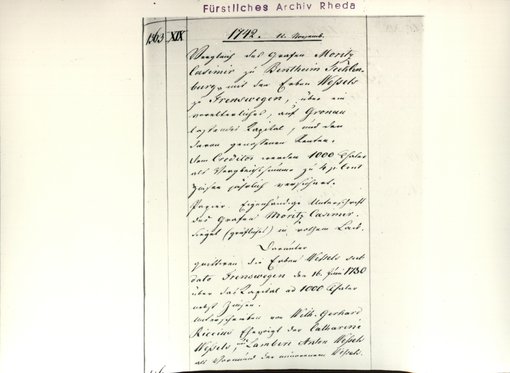 Fürstliches Archiv Rheda
1563 XIX 1742. 11. Novemb.
Vergleich des Grafen Moritz
Casimir zu Bentheim Tecklen-
burg mit den Erben Wessels
zu Frenswegen, über ein
auf Gronau
Capital, und den
davon genossenen Renten.
Dem Creditor werden 1000 Thaler
als Vergleichssumme zu 4 p Cent
Zinsen jährlich verzeichnet.
Papier. Eigenhändige Unterschrift
des Grafen Moritz Casimir.
Siegel (gräfliches) in rothem Lack.
Darunter
quittiren die Erben Wessels sub
dato Frenswegen den 16. Juni 1750
über das Capital ad 1000 Thaler
nebst Zinsen.
Unterschrieben von Wilh. Gerhard
Riccius Ehevogt der Catharina
Wessels, und Lambert Anton Wessels
als Vormund der minorennen Wessels.